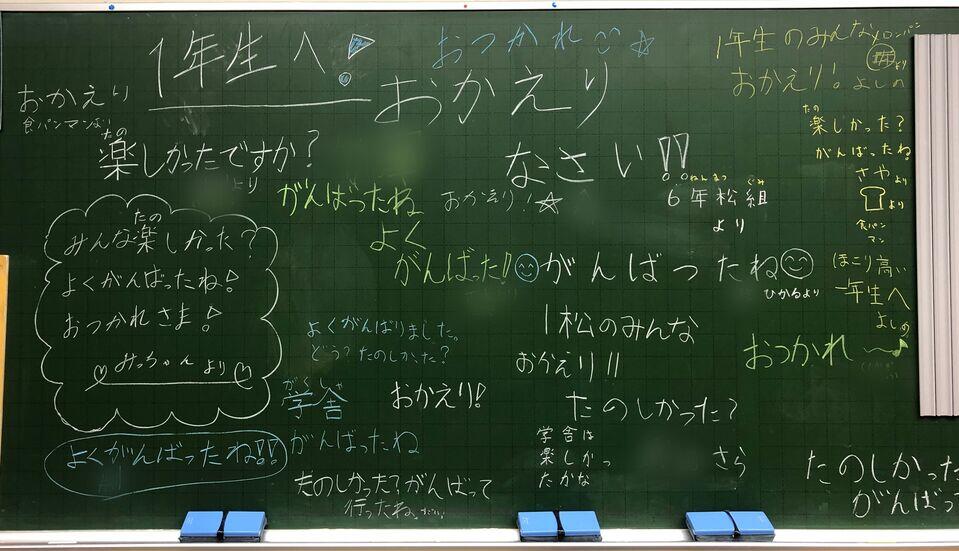 1年生へ!
おつかれ
おかえり
なさい!!
ねんまつ ぐみ
6年松組
より
おかえり
食パンマンより
たの
楽しかったですか?
より
たの
みんな楽しかった?
よくがんばったね!
おつかれさま!
みっちゃんより
よくがんばったね!!
がんばったね
おかえり!
よく
がんばった!!
がんばったね
ひかるより
よくがんばりました。
どう?たのしかった?
がくしゃ
学舎
がんばったね
おかえり!
たのしかった?がんばって
行ったね。
1松のみんな
おかえり!!
たのしかった?
学舎は
楽しかっ
たかな
さら
1年生のみんな
メロンパン
より
おかえり!よしの
たの
楽しかった?
がんばったね
さやより
より
食パン
マン
ほこり高い
一年生へ
よしの
おつかれ〜♪
たのしかった
がんばっ